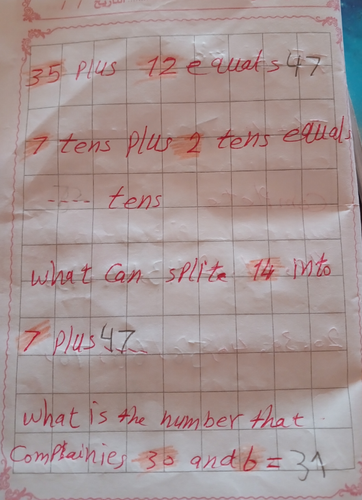 35 plus 12 equals 47
7 tens plus 2 tens equal
---- tens
what can splite 14 into
7 plus 47
what is the number that
Complainies 30 and 6 = 31